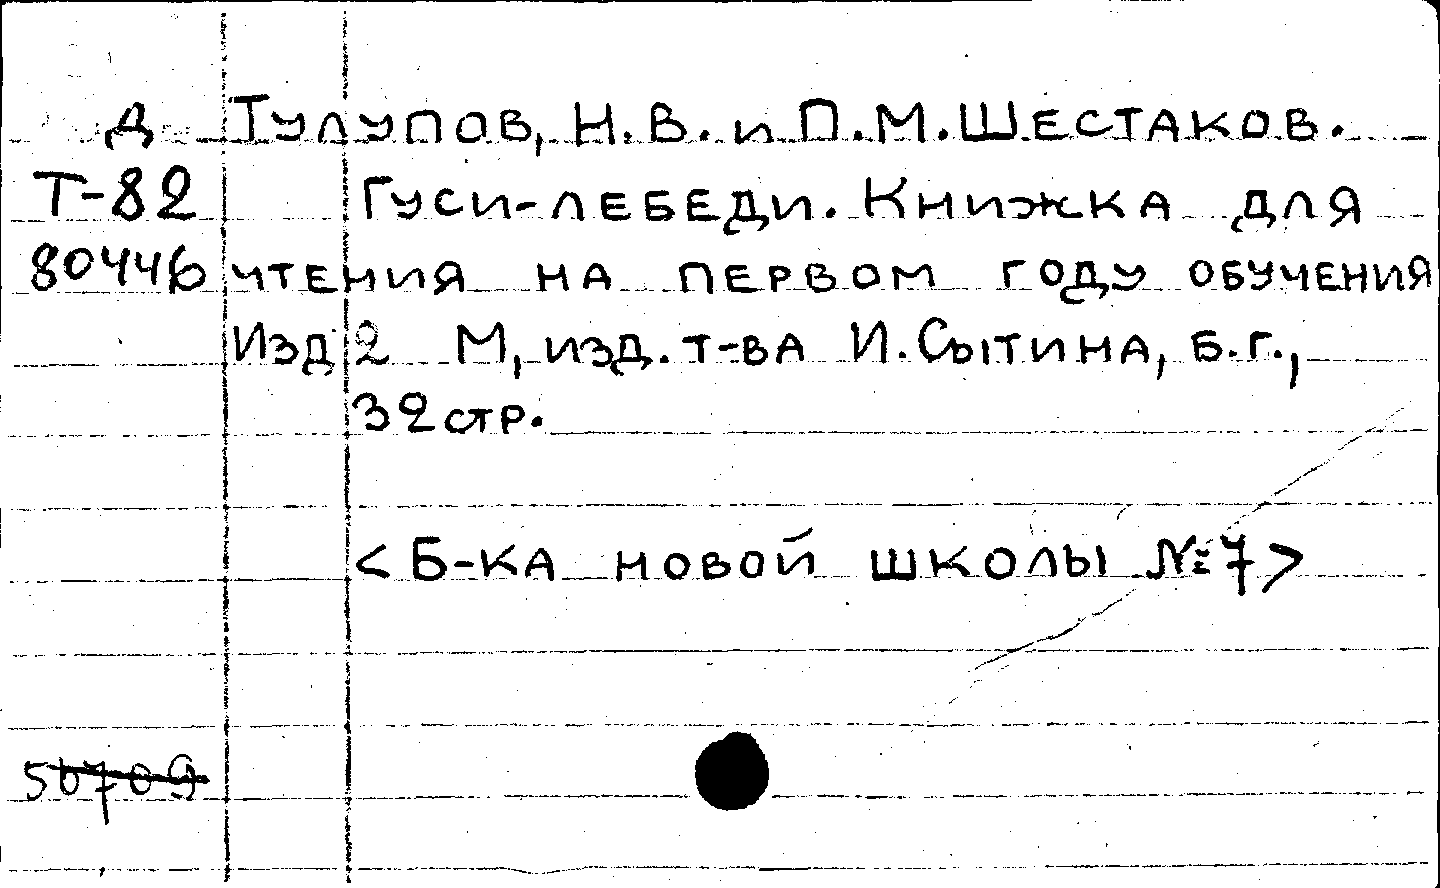 Д Тулупов, Н.В. и П.М. Шестаков.
Т-82 Гуси-лебеди. Книжка для
80446 чтения на первом году обучения
Изд 2 М, изд. т-ва И. Сытина, б.г.,
32 стр.
<Б-ка новой школы №7>
56709